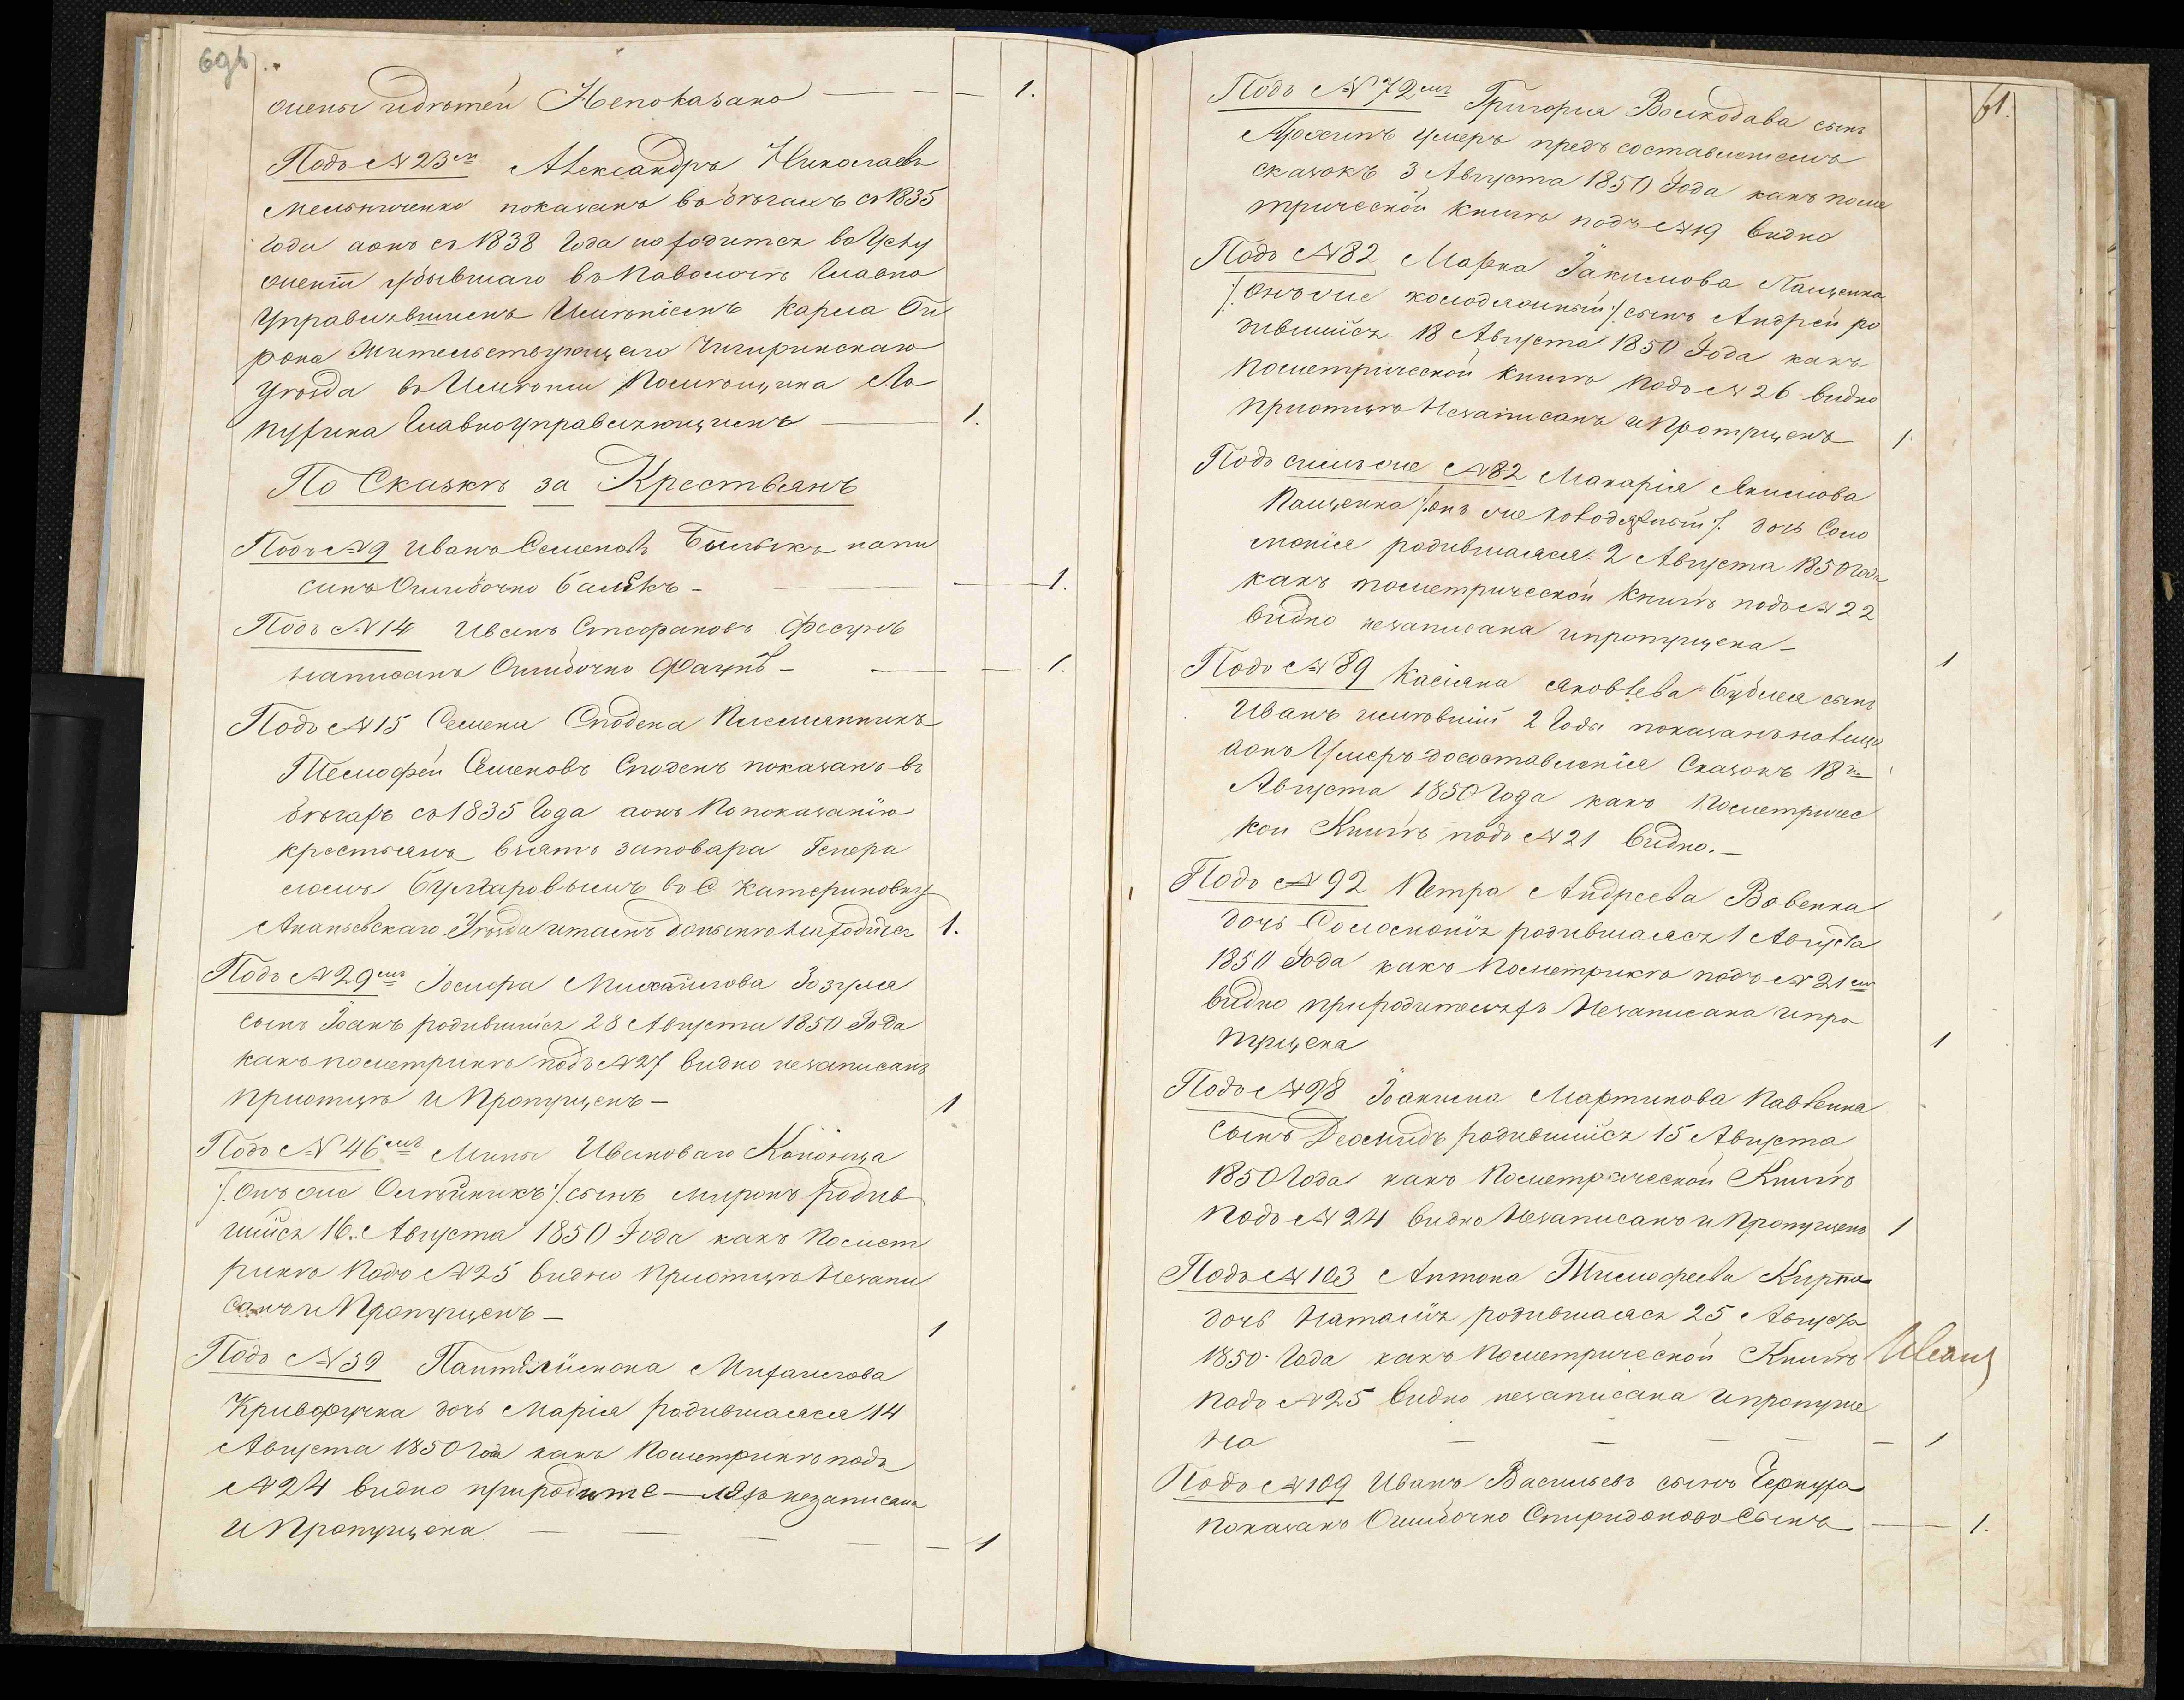 жены идѣтей Непоказано — — — 1.
Подъ №23ъм Александръ Николаевъ
Мельниченко показанъ въ бѣгахъ съ 1835
Года аонъ съ 1838 Года находится въ
бывшаго въ Паволочѣ Главно
Управлявшимъ Имѣніемъ Карла
рона Жительствующаго Чигиринскаго
Уѣзда въ Имѣніи Помѣщика Ло
пухина Главноуправляющимъ — 1.
По Сказкѣ за Крестьянъ
Подъ №9 Иванъ Семеновъ напи
санъ Ошибочно — — — 1.
Подъ №14 Иванъ Стефановъ
написанъ Ошибочно — — — 1.
Подъ №15 Семена Сподена Племянникъ
Тимофей Семеновъ Споденъ показанъ въ
бѣгахъ съ 1835 Года аонъ Попоказанію
крестьянъ взятъ заповара Генера
ломъ Булгаровымъ въ С Катериновку
Ананьевскаго Уѣзда итамъ донынѣ находится 1.
Подъ №29мъ Іосифа Михайлова Зозуля
сынъ Іоанъ родившійся 28 Августа 1850 Года
какъ пометрикѣ подъ №27 видно незаписанъ
приотцѣ и Пропущенъ — 1
Подъ №46мъ Мины Ивановаго
/:Онъ же Олѣйникъ:/ сынъ Миронъ родив
шійся 16. Августа 1850 Года какъ Помет
рикѣ Подъ №25 видно приотцѣ Незапи
санъ и Пропущенъ — 1
Подъ №59 Пантелііимона Михайлова
Кривофучка дочь Марія родившаяся 14
Августа 1850 Года какъ Пометрикѣ подъ
№24 видно природите—ляхъ незаписана
и Пропущена — — — — — 1
61.
Подъ №72мъ Григорія Волкодава сынъ
умеръ предъ составленіемъ
сказокъ 3 Августа 1850 Года какъ поме
трической книгѣ подъ №19 видно
Подъ №82 Марка Іакимова Пащенка
/:Онъ же колодяжный:/ сынъ Андрей ро
дившійся 18 Августа 1850 Года какъ
Пометрической книгѣ подъ №26 видно
приотцѣ Незаписанъ и Пропущенъ 1
Подъ симъ же №82 Макарія Якимова
Пащенка /:онъ же колодяжный:/ дочь Соло
монія родившаяся 2 Августа 1850 Года
какъ пометрической книгѣ подъ №22
видно незаписана ипропущена — 1
Подъ №89 Касіяна Яковлева Бублея сынъ
Иванъ имѣвшій 2 Года показанъ налицо
аонъ Умеръ досоставленія Сказокъ 18го
Августа 1850 Года какъ Пометричес
кой Книгѣ подъ №21 видно. —
Подъ №92 Петра Андреева Вовенка
дочь Соломонія родившаяся 1 Августа
1850 Года какъ Пометрикѣ подъ №21мъ
видно природителяхъ Незаписана ипро
пущена 1
Подъ №98 Іоакима Мартинова Павленка
сынъ Деомидъ родившійся 15 Августа
1850 Года какъ Пометрической Книгѣ
подъ №24 видно Незаписанъ и Пропущенъ 1
Подъ №103 Антона Тимофеева
дочь Наталія родившаяся 25 Августа
1850 Года какъ Пометрической Книгѣ
подъ №25 видно незаписана ипропуще
на — — — — — 1
Подъ №109 Иванъ Васильевъ сынъ
показанъ Ошибочно Спиридоновъ Сынъ — 1.